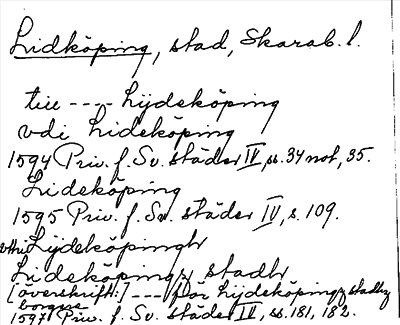 Lidköping, stad, Skarab. l.
till ---- Lijdeköping
vdi Lideköping
1594 Priv. f. Sv. städer IV, ss. 34 not, 35.
Lideköping
1595 Priv. f. Sv. städer IV, s. 109.
vthi Lijdeköpingh
Lideköpingz stadh
[överskrift:] --- för Lijdeköpingz stadhz
borgare
1597 Priv. f. Sv. städer IV, ss. 181, 182.